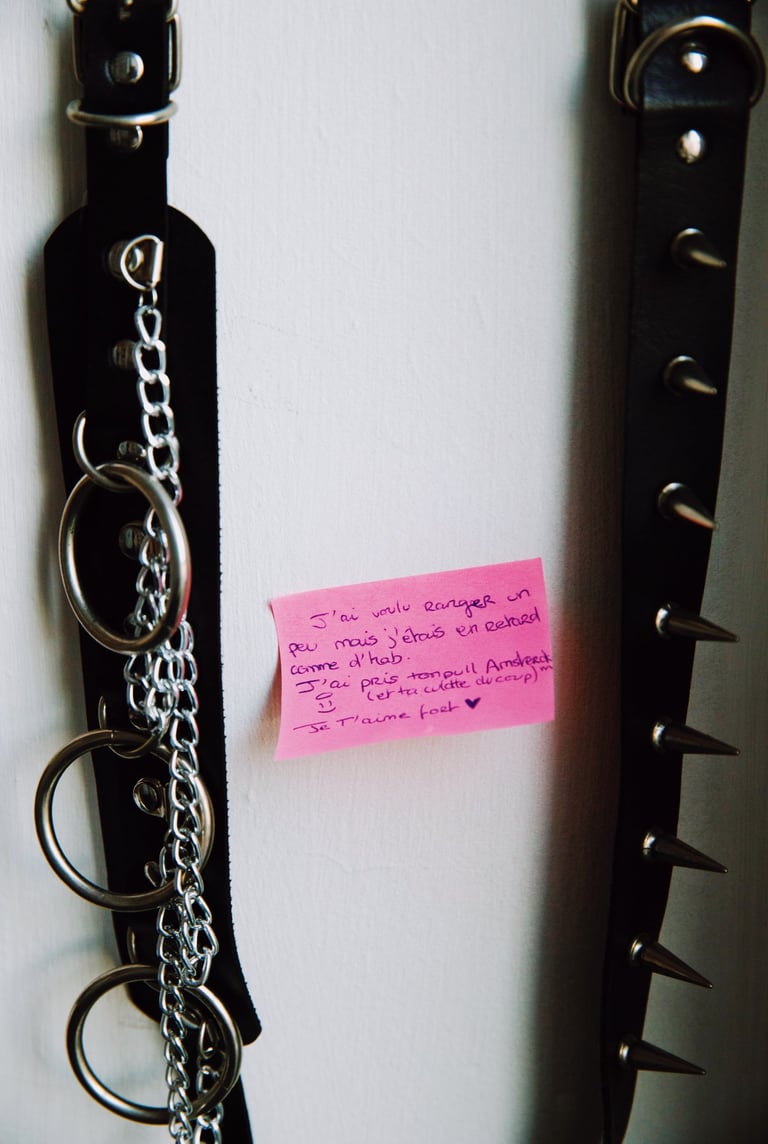 J'ai voulu ranger un
peu mais j'étais en retard
comme d'hab.
J'ai pris ton pull Amsterdam
(et ta culotte du coup)
Je T'aime fort ♥